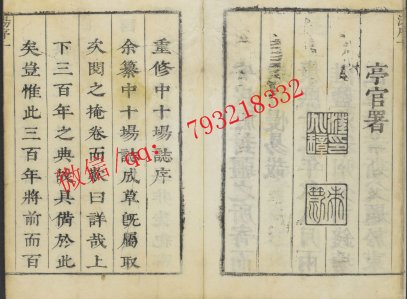 亭官署
重修中十場誌序
余纂中十場誌成草既屬取
次閱之掩卷而歎曰詳哉上
下三百年之典故具備於此
矣豈惟此三百年將前而百
微信/qq: 793218332